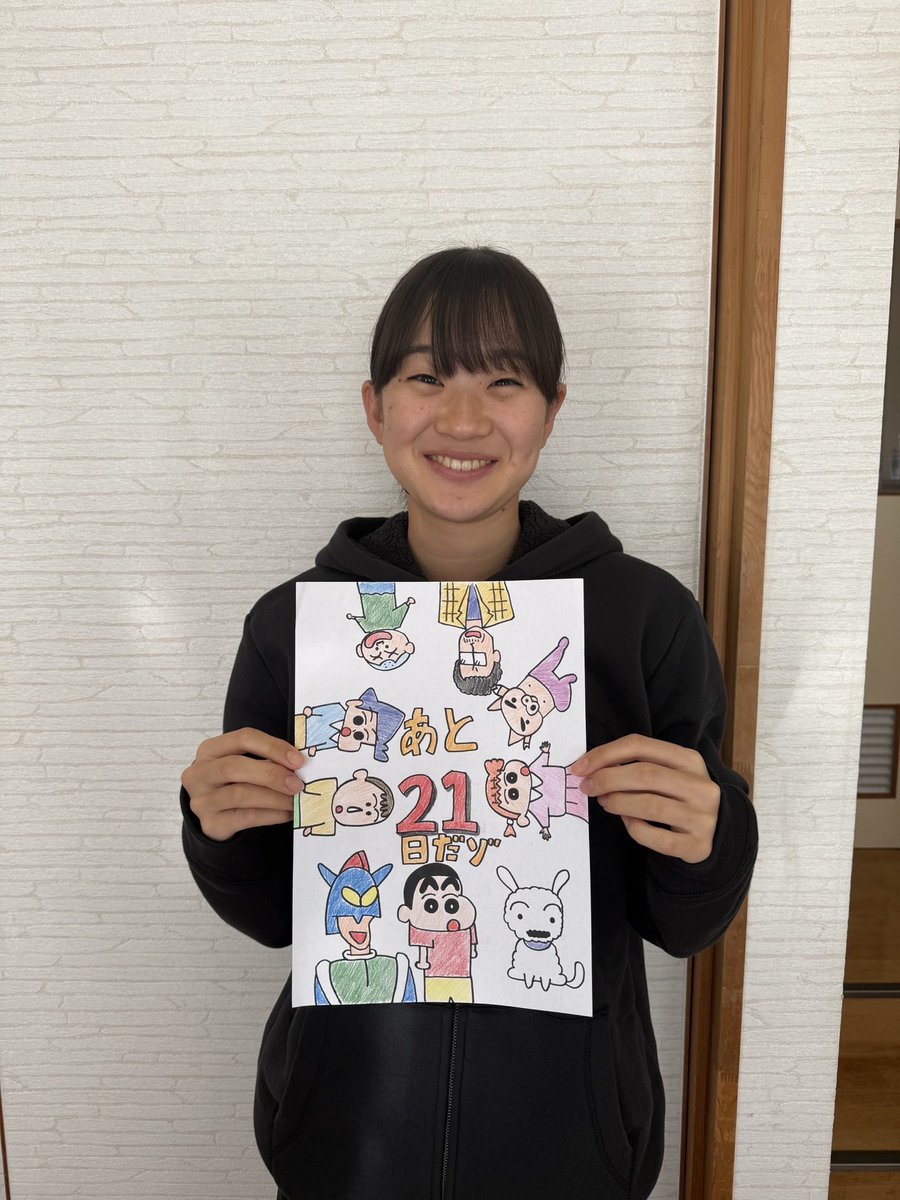 あと
21
日だゾ